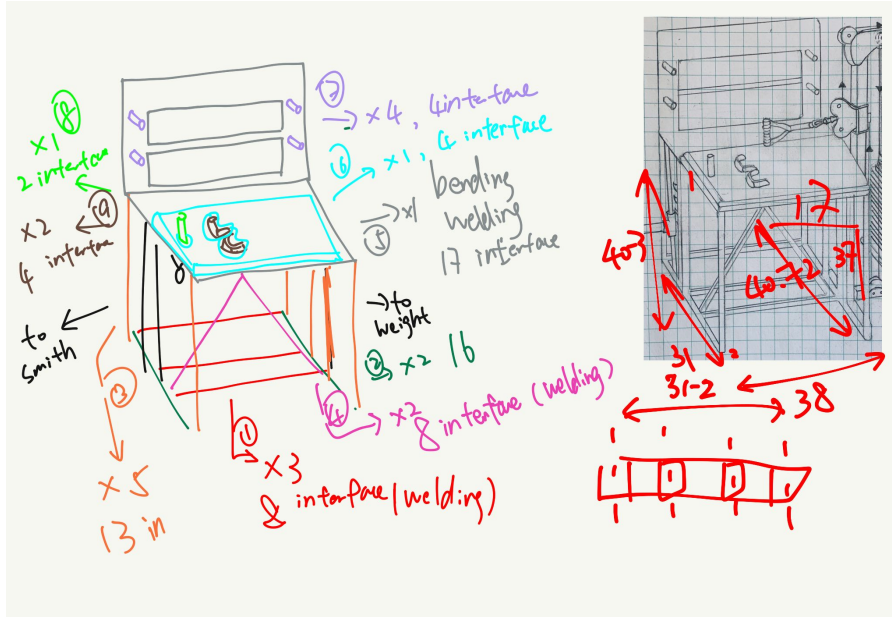 ⑧
x1
2 interfon
⑨
x2
4 interfae
to
smith
③
x5
13 in
⑦
x4, 4interfave
⑥
x1, 4 interface
⑤
x1
bending
welding
17 interface
to
weight
② x2 16
④
x2
8 interface (welding)
①
x3
8 interface (welding)
1
17
403
37
40.72
31
2
31-2
38